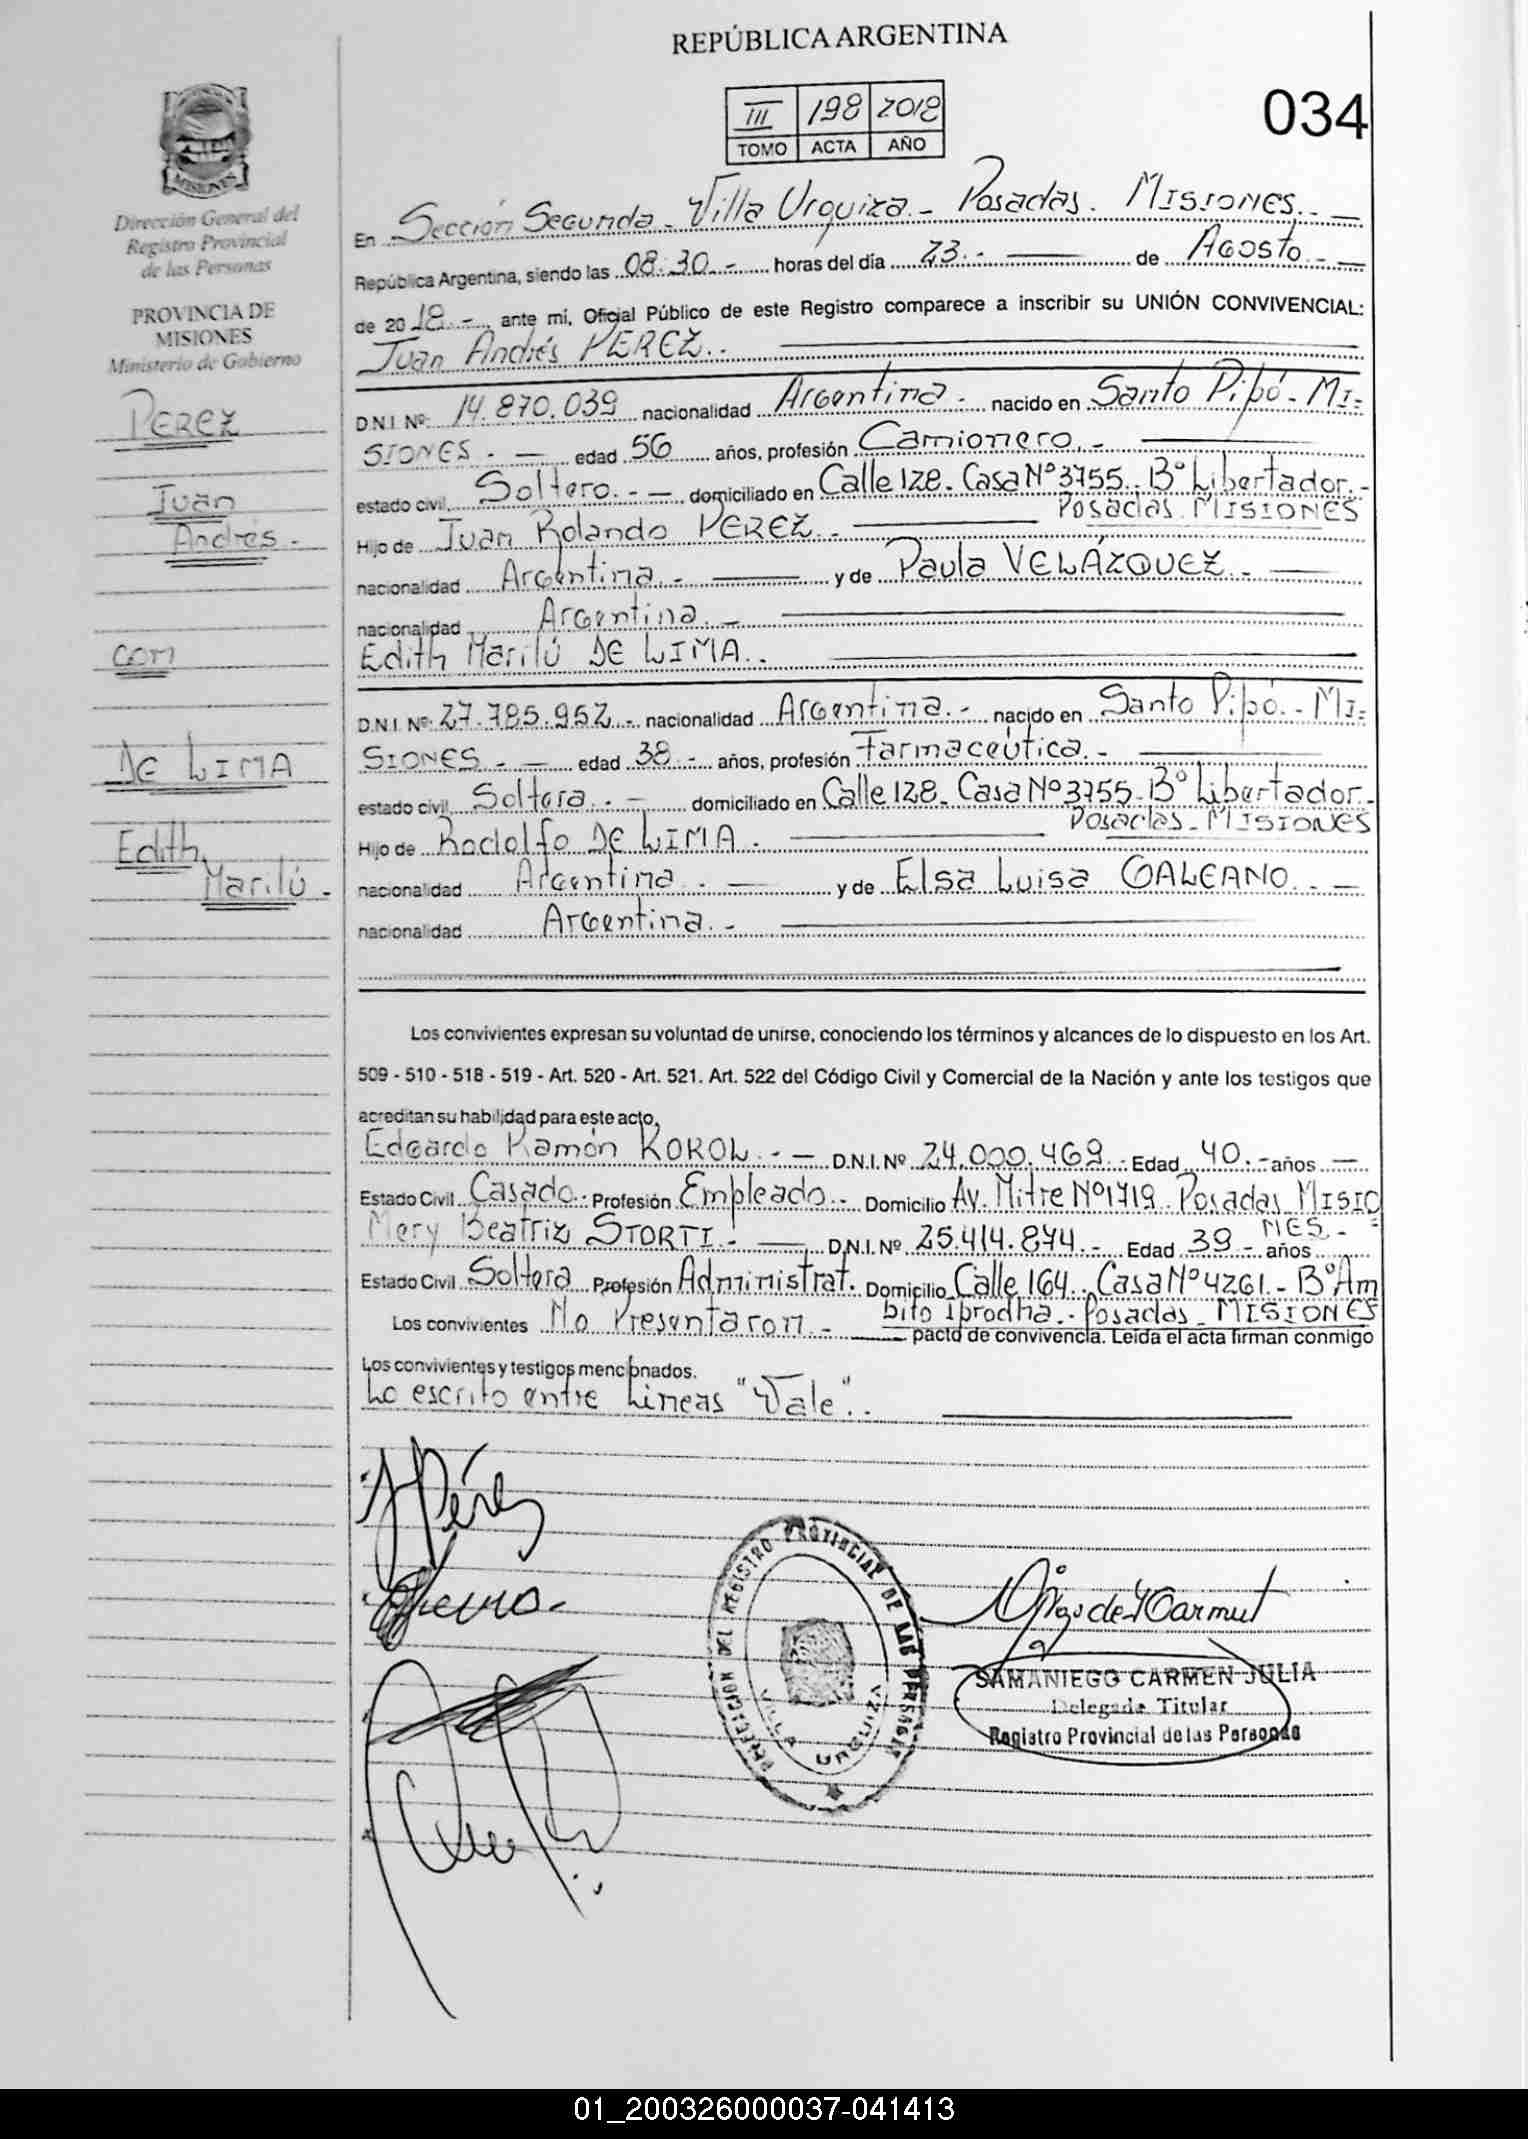 REPÚBLICA ARGENTINA
III 198 2018
TOMO ACTA AÑO
034
MISIONES
Dirección General del
Registro Provincial
de las Personas
PROVINCIA DE
MISIONES
Ministerio de Gobierno
PEREZ
Juan
Andrés.-
con
DE LIMA
Edith
Marilú.-
En Sección Segunda - Villa Urquiza.- Posadas. MISIONES.-
República Argentina, siendo las 08:30.- horas del día 23.- de Agosto.-
de 2018.- ante mí, Oficial Público de este Registro comparece a inscribir su UNIÓN CONVIVENCIAL:
Juan Andrés PEREZ.-
D.N.I. Nº: 14.870.039 nacionalidad Argentina.- nacido en Santo Pipó - MI=
SIONES.- edad 56 años, profesión Camionero.-
estado civil Soltero.- domiciliado en Calle 128. Casa Nº 3755. Bº Libertador.-
Posadas. MISIONES
Hijo de Juan Rolando PEREZ.-
nacionalidad Argentina.- y de Paula VELÁZQUEZ.-
nacionalidad Argentina.-
Edith Marilú DE LIMA.-
D.N.I. Nº: 27.785.952.- nacionalidad Argentina.- nacido en Santo Pipó.- MI=
SIONES.- edad 38.- años, profesión Farmacéutica.-
estado civil Soltera.- domiciliado en Calle 128. Casa Nº 3755- Bº Libertador.-
Posadas- MISIONES
Hijo de Rodolfo DE LIMA.-
nacionalidad Argentina.- y de Elsa Luisa GALEANO.-
nacionalidad Argentina.-
Los convivientes expresan su voluntad de unirse, conociendo los términos y alcances de lo dispuesto en los Art.
509 - 510 - 518 - 519 - Art. 520 - Art. 521. Art. 522 del Código Civil y Comercial de la Nación y ante los testigos que
acreditan su habilidad para este acto,
Edgardo Ramón KOROL.- D.N.I. Nº 24.000.469.- Edad 40.- años
Estado Civil Casado.- Profesión Empleado.- Domicilio Av. Mitre Nº 1719. Posadas MISIO
NES.-
Mery Beatriz STORTI.- D.N.I. Nº 25.414.874.- Edad 39.- años
Estado Civil Soltera Profesión Administrat. Domicilio Calle 164. Casa Nº 4261.- Bº Am
Posadas - MISIONES
Los convivientes No Presentaron.- pacto de convivencia. Leída el acta firman conmigo
Los convivientes y testigos mencionados.
Lo escrito entre Líneas "Vale".-
J Pérez
DELEGACION DEL REGISTRO PROVINCIAL DE LAS PERSONAS
VILLA URQUIZA
SAMANIEGO CARMEN JULIA
Delegada Titular
Registro Provincial de las Personas
01_200326000037-041413